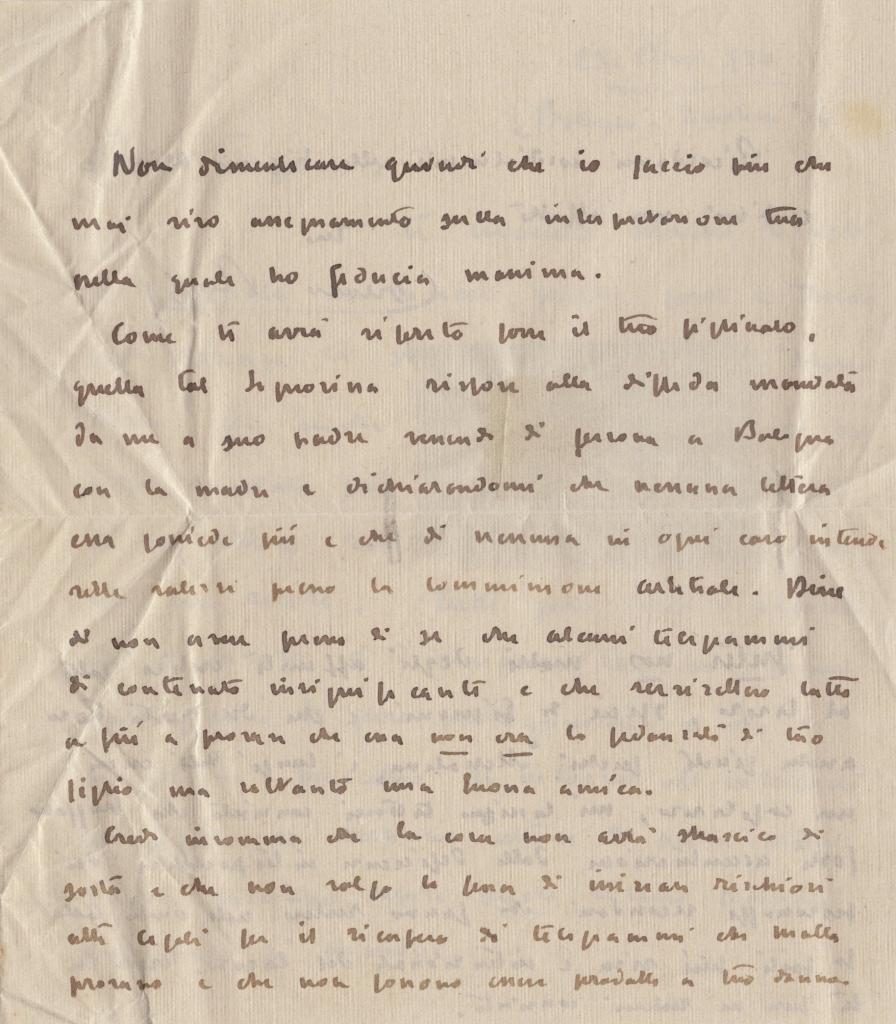 Non dimenticare quindi che io faccio più che
mai vivo assegnamento sulla interpretazione tua
nella quale ho fiducia massima.
Come ti avrà riferito forse il tuo figlinolo,
quella tal Signorina rispose alla diffida mandata
da me a suo padre venendo di persona a Bologna
con la madre e dichiarandomi che nessuna lettera
essa possiede più e che di nessuna in ogni caso intende
rebbe valersi presso la Commissione arbitrale. Disse
di non avere presso di se che alcuni telegrammi
di contenuto insignificante e che servirebbero tutto
al più a provare che essa non era la fidanzata di tuo
figlio ma soltanto una buona amica.
Credo insomma che la cosa non avrà strascico di
sorta e che non valga la pena di iniziare rischiosi
atti legali per il ricupero di telegrammi che nulla
provano e che non possono essere prodotti a tuo danno.